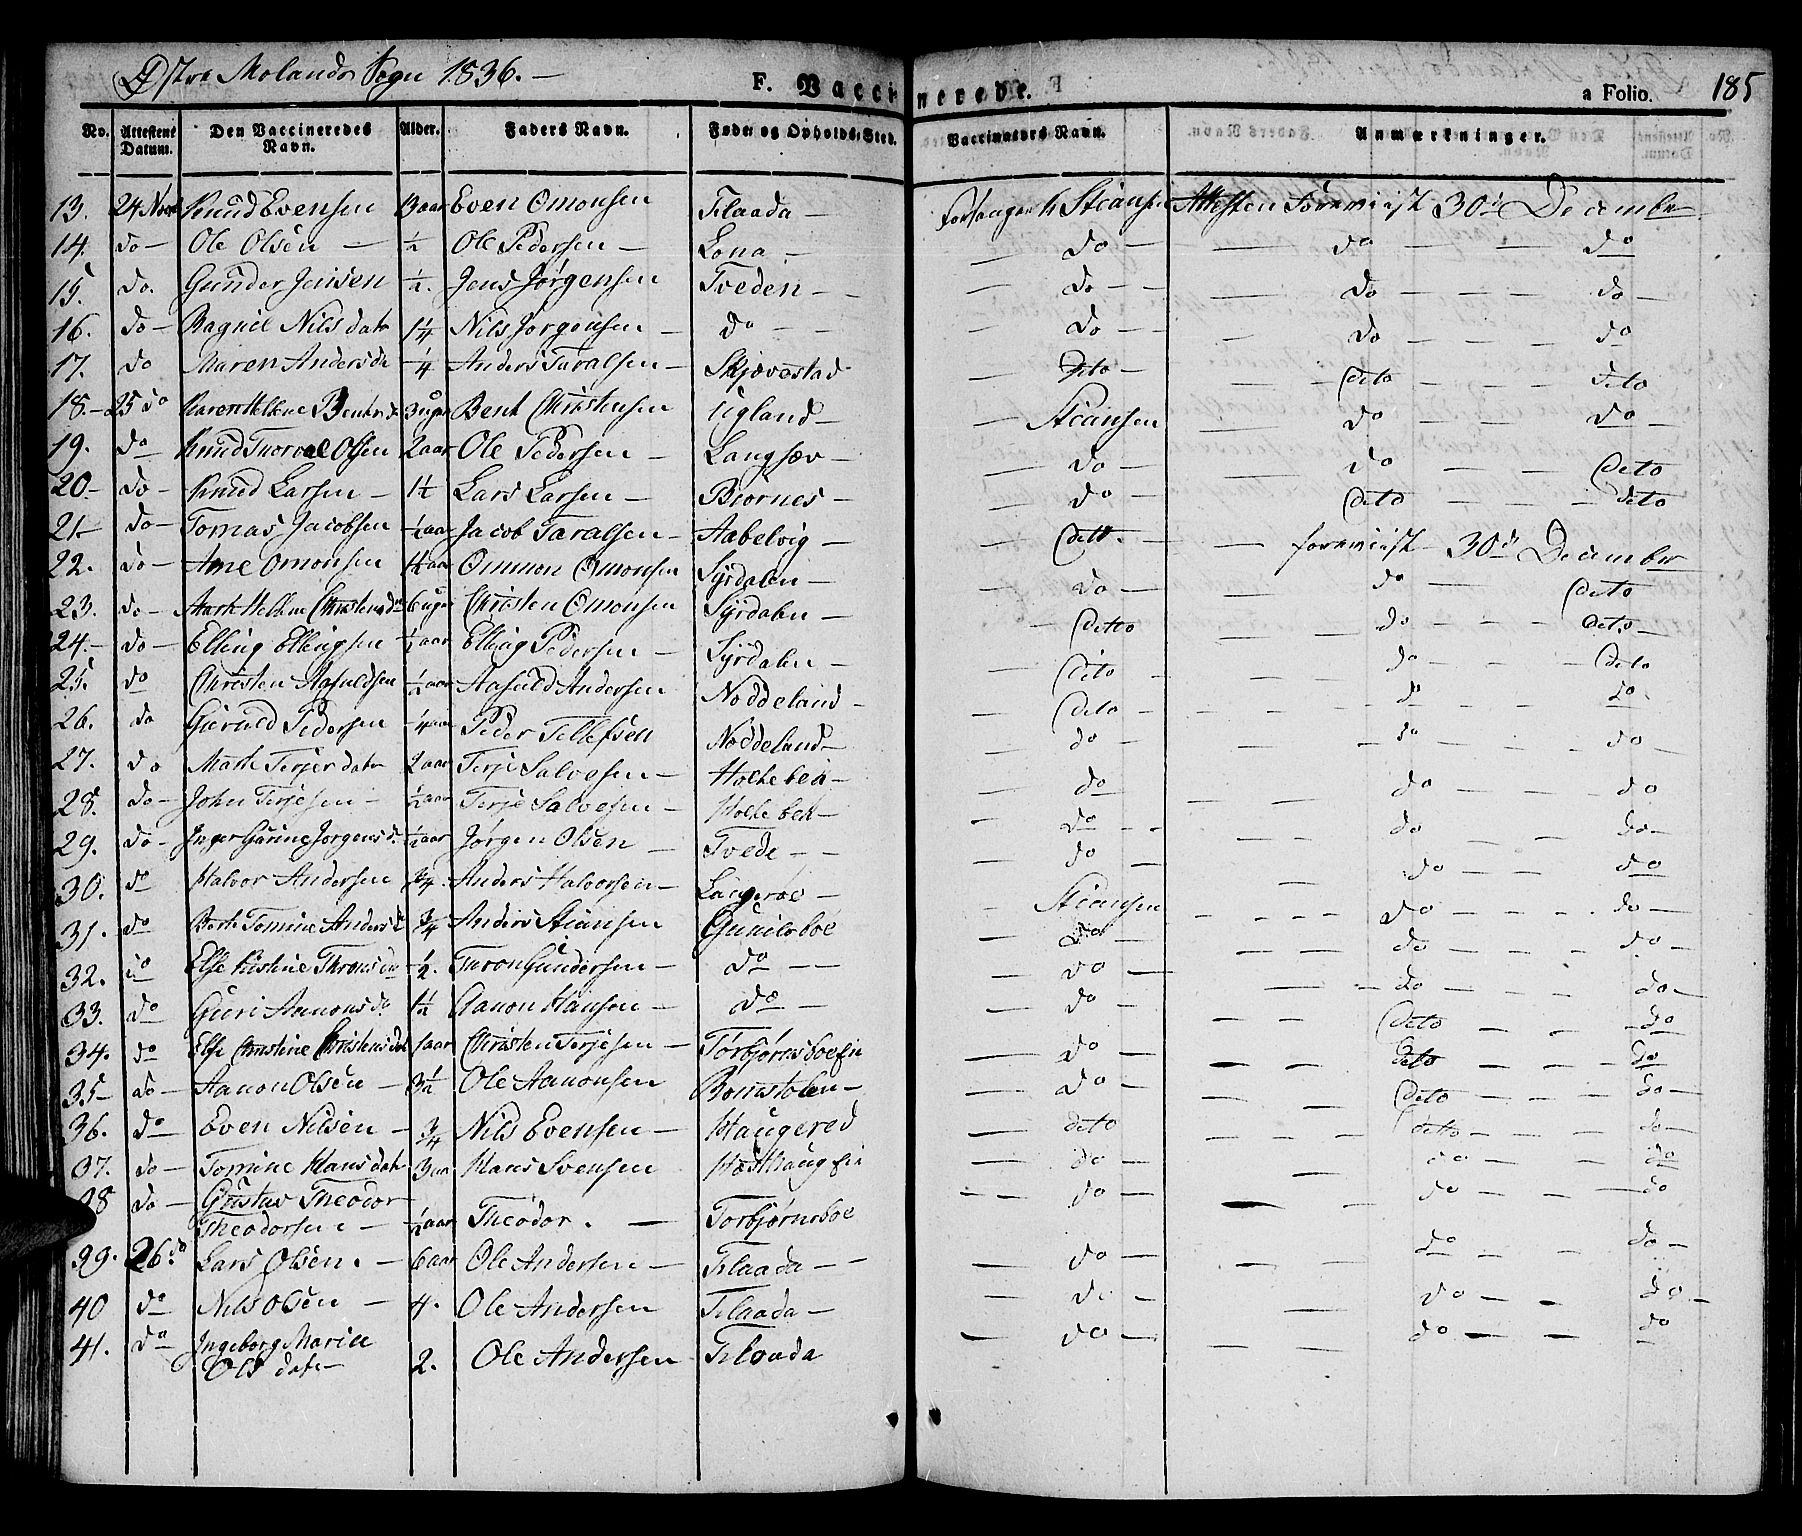 Østre Molands Sogn 1836.—
F. Vaccinerede. a Folio. 185
No. Attestens Datum. Den Vaccineredes Navn. Alder. Faders Navn. Føde- og Opholds-Sted. Vaccinateurs Navn. Anmærkninger.
13. 24 Novr Knud Evensen 3 aar Even Omonsen Flaada — Stiansen Attesten 30d December
14. do — Ole Olsen — ½ Ole Pedersen — Lona — do — do — do
15. do. Gunder Jensen ½. Jens Jørgensen Tveden — do — do — do —
16. do — Ragnil Nilsdatr 1¼ Nils Jørgensen — do — do — do — do
17. do Maren Andersda ¼ Anders Taralsen — Skjævestad dito — dito — dito
18. — 25 do Karen Helene Bentsd 3 uger Bent Christensen Ugland — Stiansen do — do —
19. do Knud Torval Olsen 2 aar Ole Pedersen — Langsæv — do — do — dito
20 — do — Knud Larsen — 1½ Lars Larsen — Biornes — do — dito — dito
21 — do — Tomas Jacobsen ½ aar Jacob Taralsen — Aabelvig — ditto. — 30d December
22. do — Ane Omonsen 1½ aar Ommon Omonsen Syrdalen — do — do — dito
23. do — Christensd 6 uger Christen Omonsen Syrdalen ditto do — dito —
24. — do — Elling Ellingsen ½ aar Elling Pedersen — Syrdalen — dito do — dito
25. do Christen Aasuldsen ½ aar Aasuld Andersen Noddeland — dito — do — do
26. do Pedersen ¼ aar Peder Tellefsen Noddeland — do — do — do —
27. do Terjesdatr 2 aar Terje Salvesen — do — do — do
28. do — John Terjesen — ½ aar Terje Salvesen — do — do — do —
29. do — Inger Gurine Jorgensd. ½ aar Jørgen Olsen — Tvede — do — do — do
30. do Halvor Andersen ¾. Anders Halvorsen — Langeroe — Stiansen do — do —
31. do Tomine Andersd ¾ Anders Stiansen do do — do —
32. do Else Kistine Thronsda ½. Tron Gundersen — do — do — do — do —
33. do Guri Aanonsda 1½ Aanon Hansen — do — do — dito — do
34. do Else Christine Christensdat 1 aar Christen Terjesen — do — dito do
35 — do — Aanon Olsen — 3½ Ole Aanonsen — do — dito do —
36. do — Even Nilsen — ¾ Nils Evensen — Haugered dito ditto — do —
37. do — Tomine Hansdatr 3 aar Hans Svensen do — do — do
38 do — Gustav Theodor
Theodorsen — ½ aar Theodor. — Torbjørnsboe do — do — do
39. 26. do Lars Olsen. — 6 aar Ole Andersen — Flaada — do — do — do —
40 do Nils Olsen — 4. Ole Andersen Flaada — do — do — do —
41. do Ingeborg Marie
Olsdatr — 2. Ole Andersen Flaada do — do — do